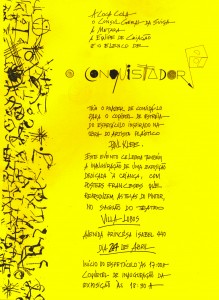 A COCA COLA
O CONSUL GERAL DA SUIÇA
A METARA
A EQUIPE DE CRIAÇÃO
E O ELENCO DE
O CONQUISTADOR
TEM O PRAZER DE CONVIDÁ-LO
PARA O COQUETEL DE ESTRÉIA
DO ESPETÁCULO INSPIRADO NA
OBRA DO ARTISTA PLÁSTICO
PAUL KLEE.
ESTE EVENTO CELEBRA TAMBÉM
A INAUGURAÇÃO DE UMA EXPOSIÇÃO
DEDICADA À CRIANÇA, COM
POSTERS FRANCESES QUE
REPRODUZEM AS TELAS DO PINTOR,
NO SAGUÃO DO TEATRO
VILLA-LOBOS
AVENIDA PRINCESA ISABEL 440
DIA 27 DE ABRIL
INÍCIO DO ESPETÁCULO ÀS 17:00H
COQUETEL DE INAUGURAÇÃO DA
EXPOSIÇÃO ÀS 18:30H